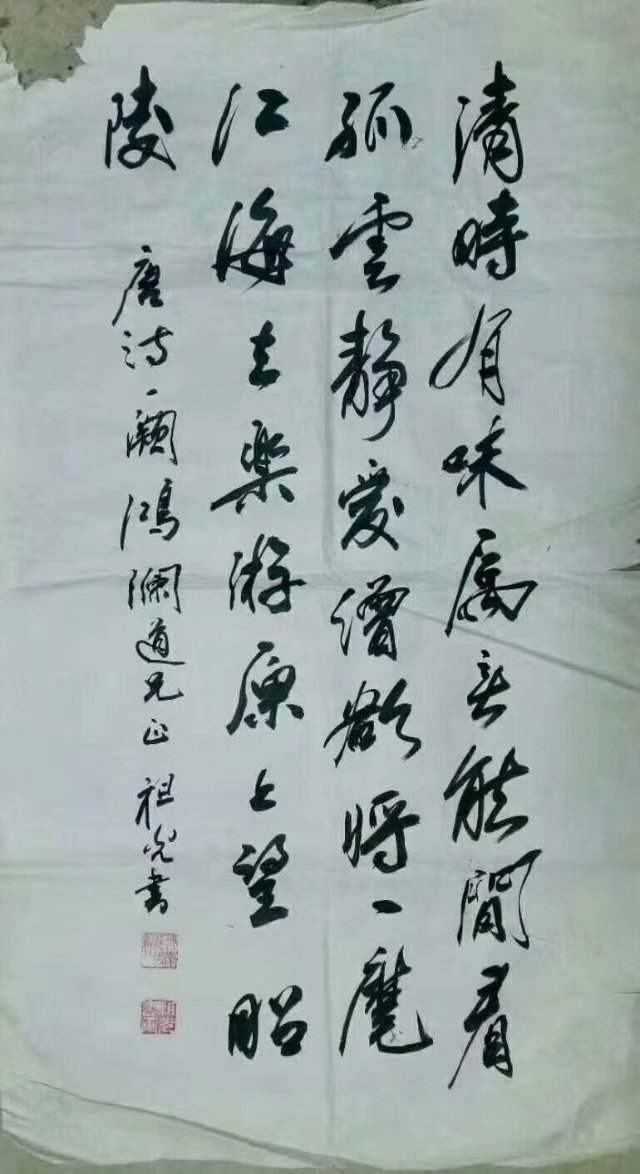 清時有味属无能閒看
孤雲靜愛僧欲將一麾
江海去樂游原上望昭
陵
唐詩一闋鴻瀾道兄正祖光書